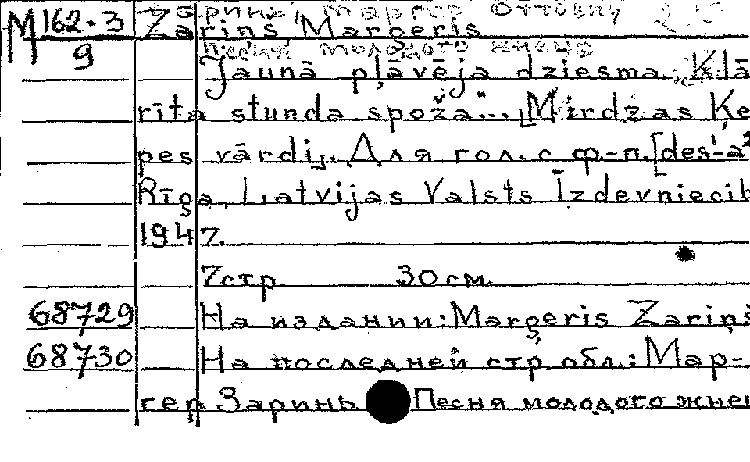 Заринь, Маргер Оттович
М 162·3 Zariņš, Marģeris
9 Песня молодого жнеца
"Jaunā pļavēja dziesma. „Klā
rīta stunda spoža"... [Mirdzas Ķe
pes vārdi]. Для гол. с ф-п. [des¹-a²
Rīga, Latvijas Valsts Izdevniecīb
1947.
7 стр 30 см.
68729 На издании: Marģeris Zariņš
68730 На последней стр. обл.: Мар-
гер Заринь Песня молодого жнец